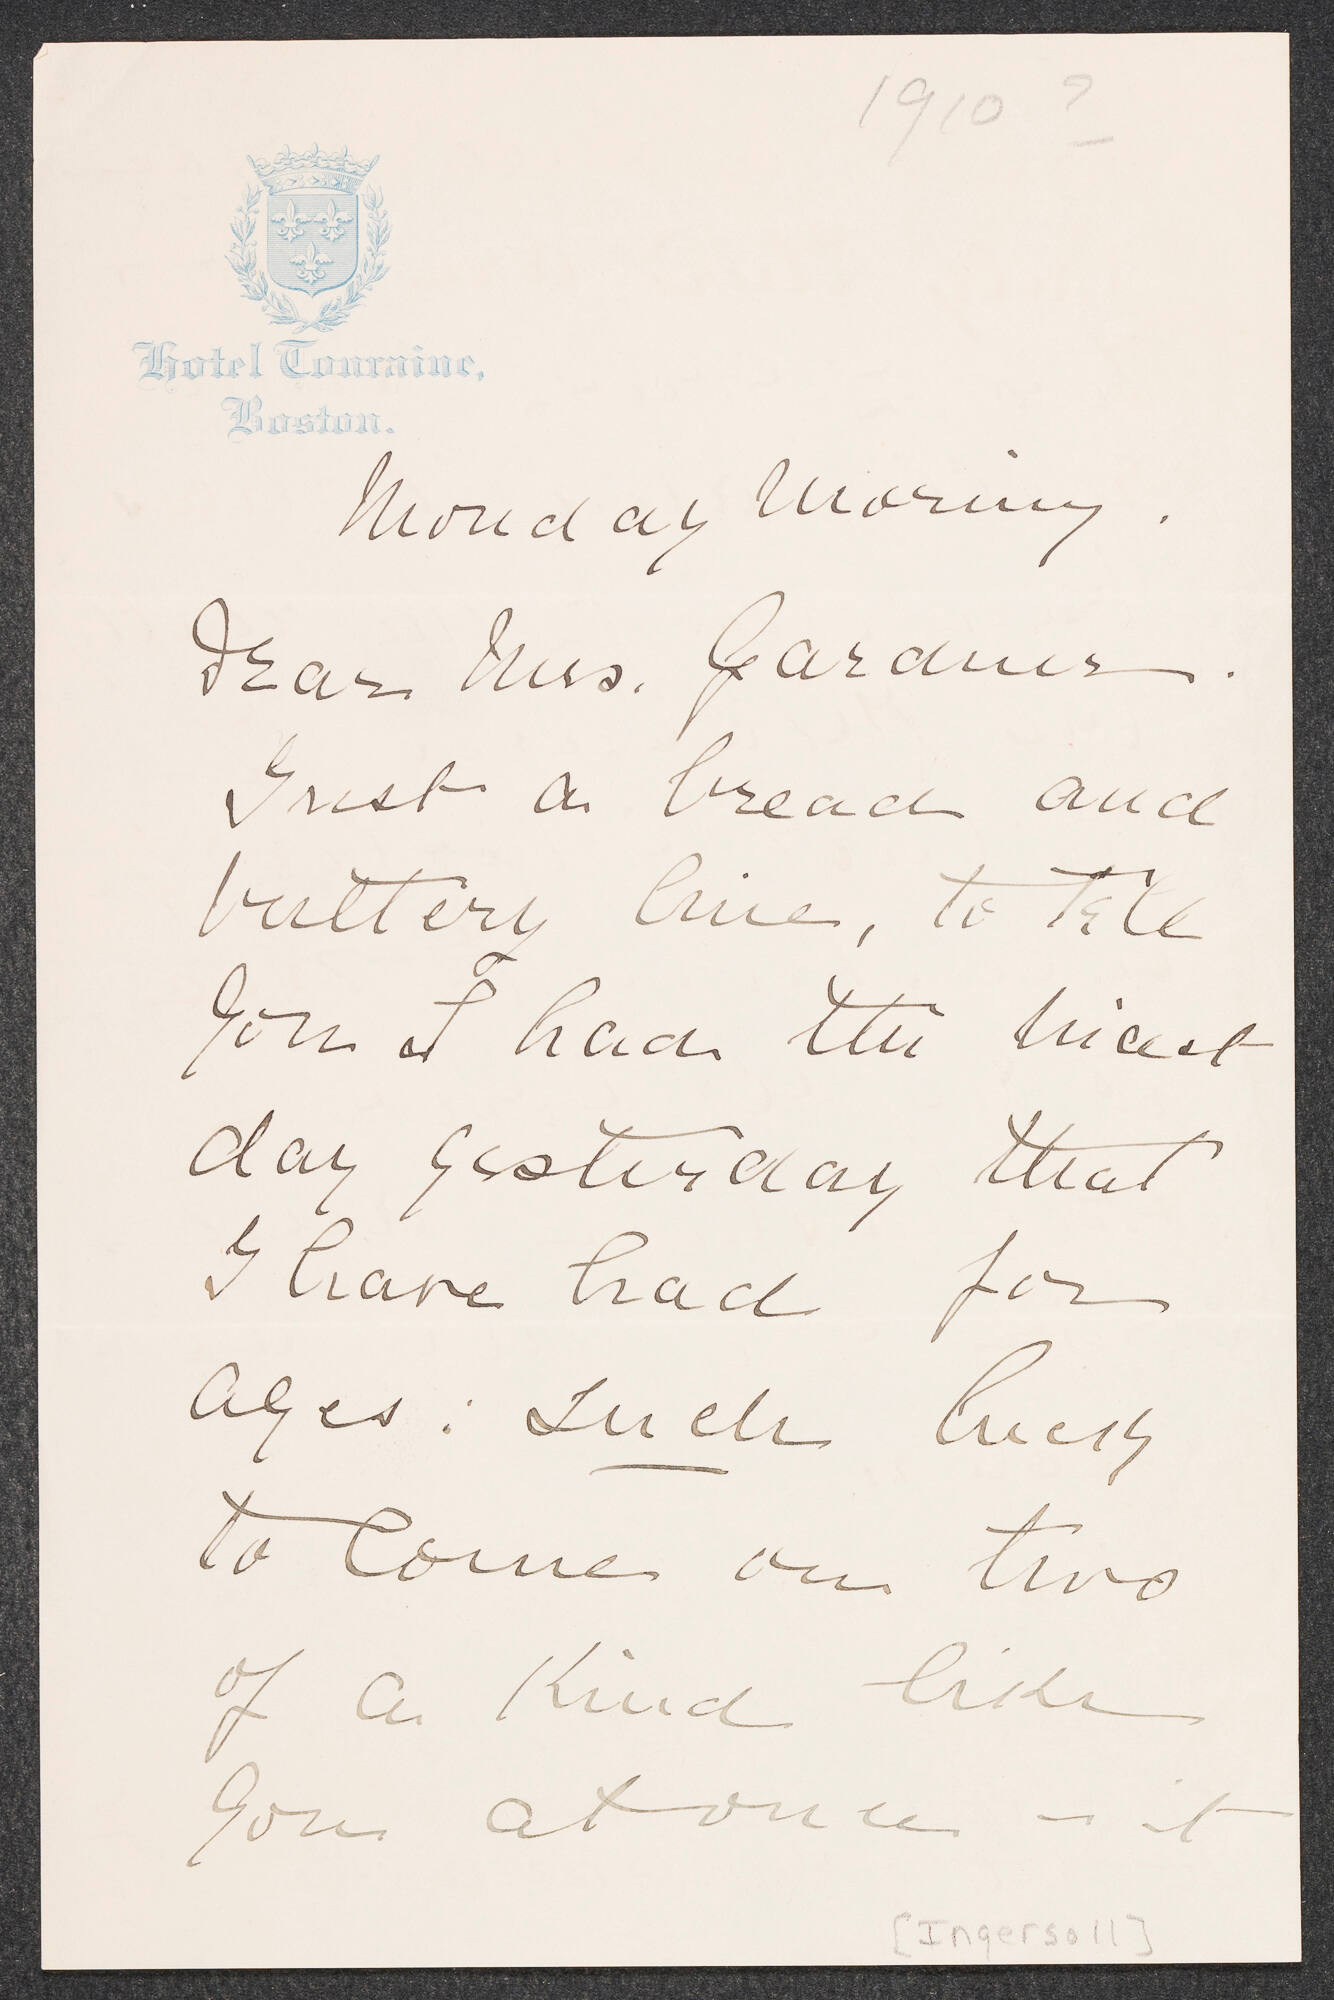 1910 ?
Hotel Touraine,
Boston.
Monday Morning.
Dear Mrs. Gardner.
Just a bread and
buttery line, to tell
you I had the nicest
day yesterday that
I have had for
ages: such luck
to come on two
of a kind like
you at once - it
[Ingersoll]